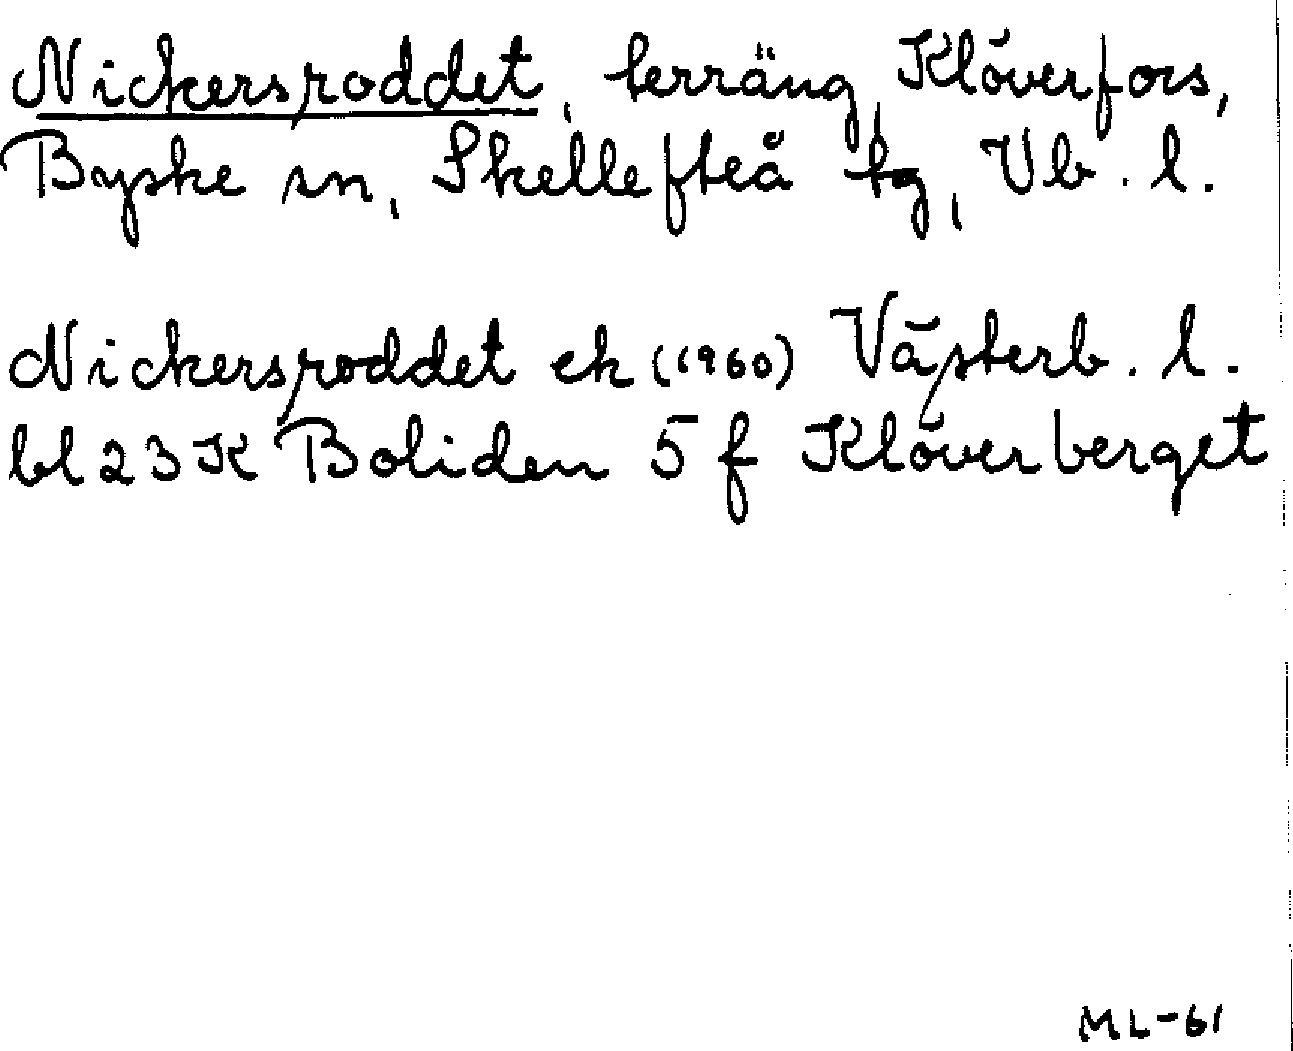 Nickersroddet, terräng, Klöverfors,
Byske sn, Skellefteå tg, Vb. l.
Nickersroddet ek (1960) Västerb. l.
bl 23 K Boliden 5 f Klöverberget
ML-61